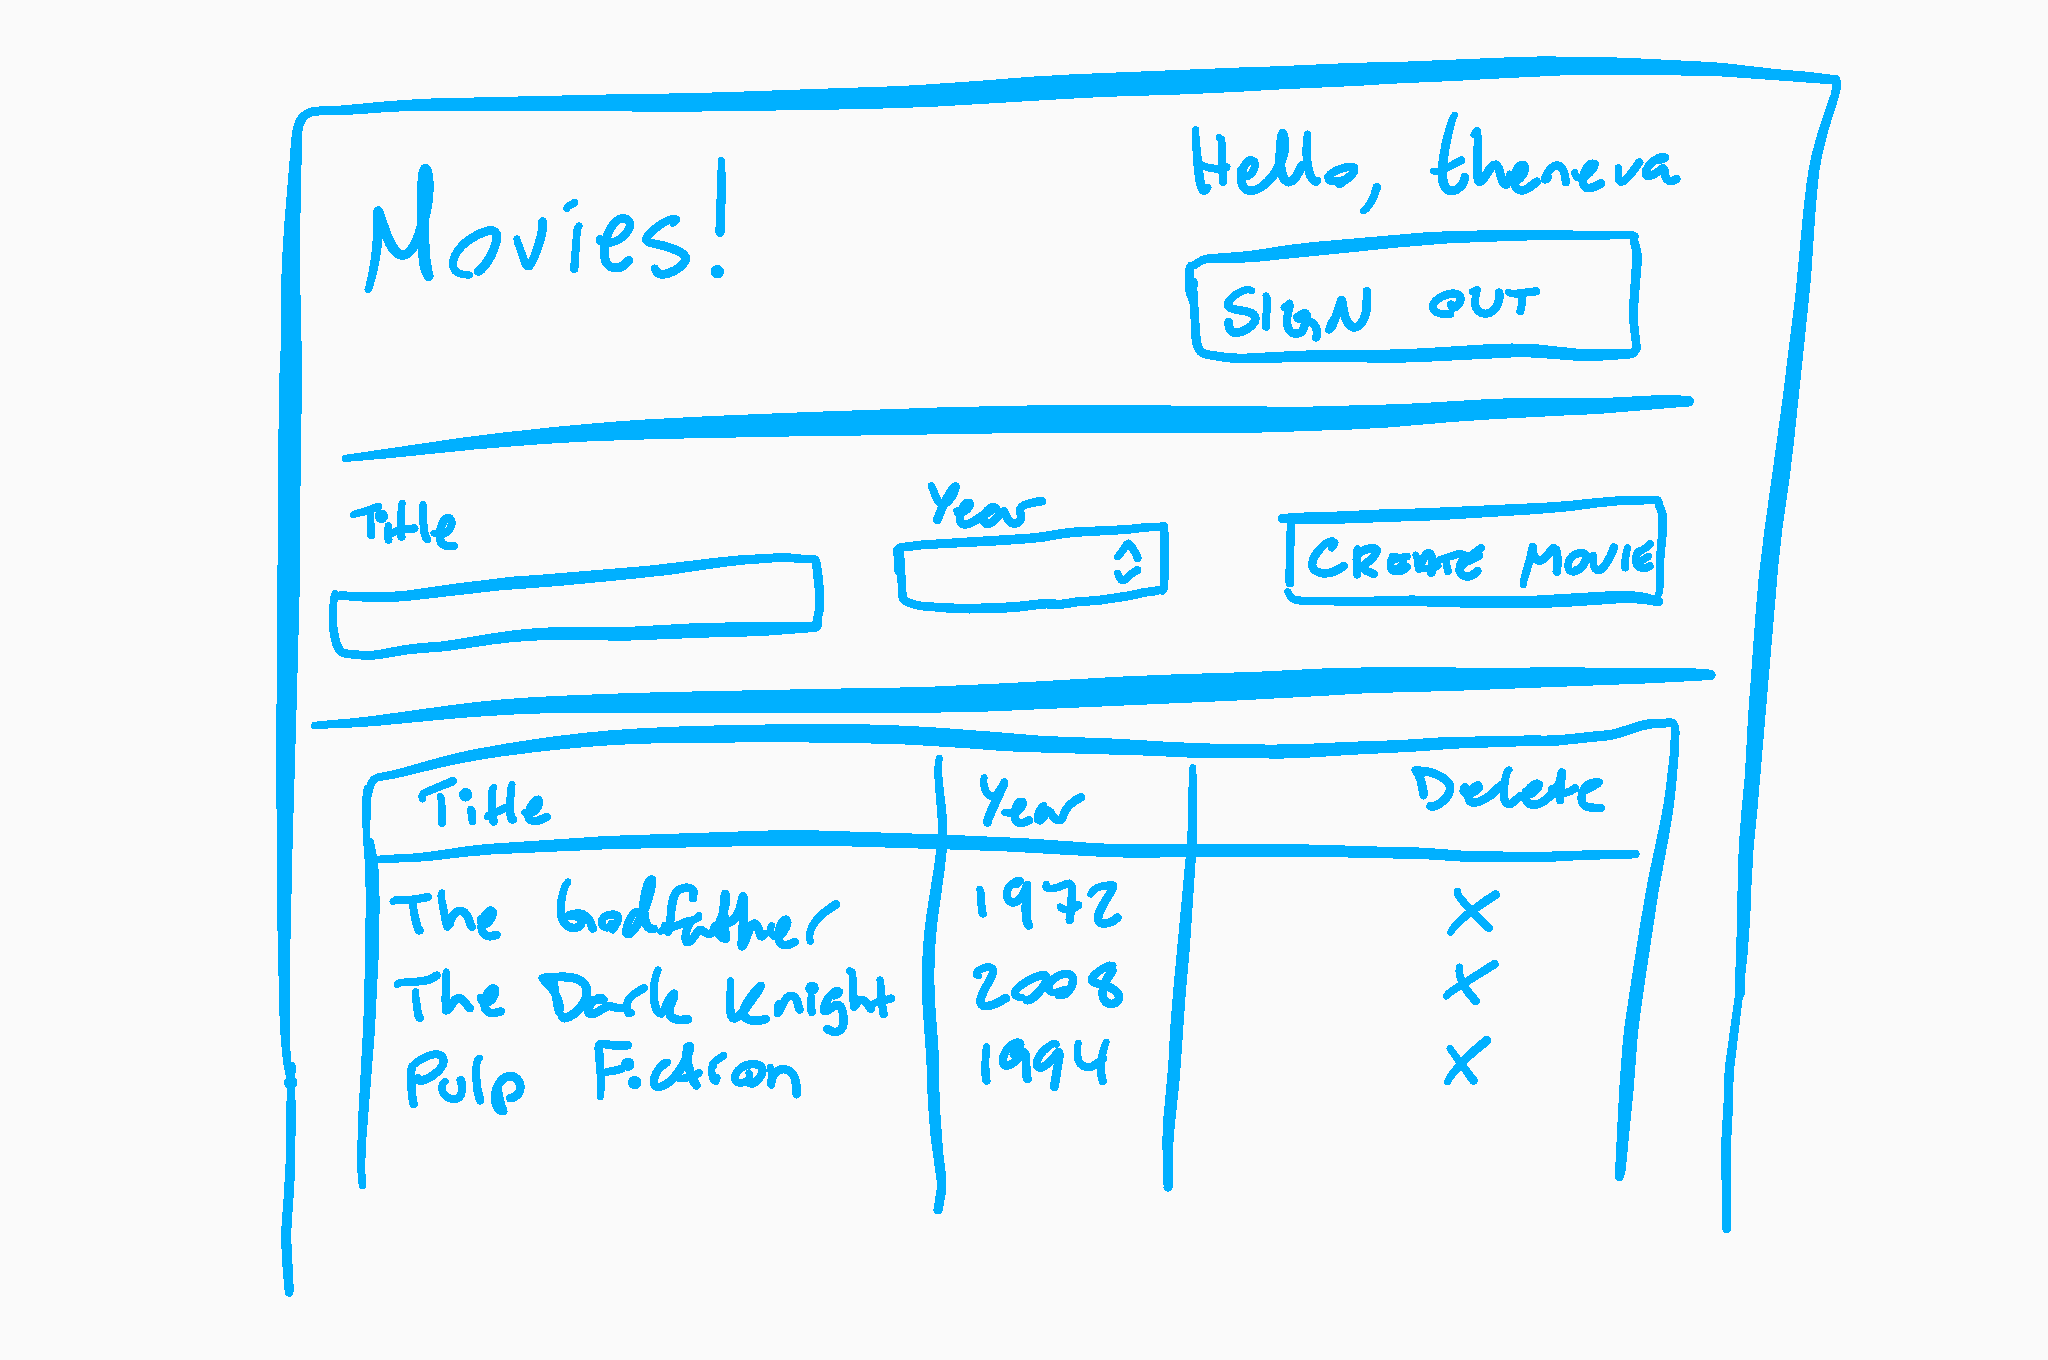 Movies!
Hello, theneva
SIGN OUT
Title
Year
CREATE MOVIE
Title Year Delete
The Godfather 1972 X
The Dark Knight 2008 X
Pulp Fiction 1994 X